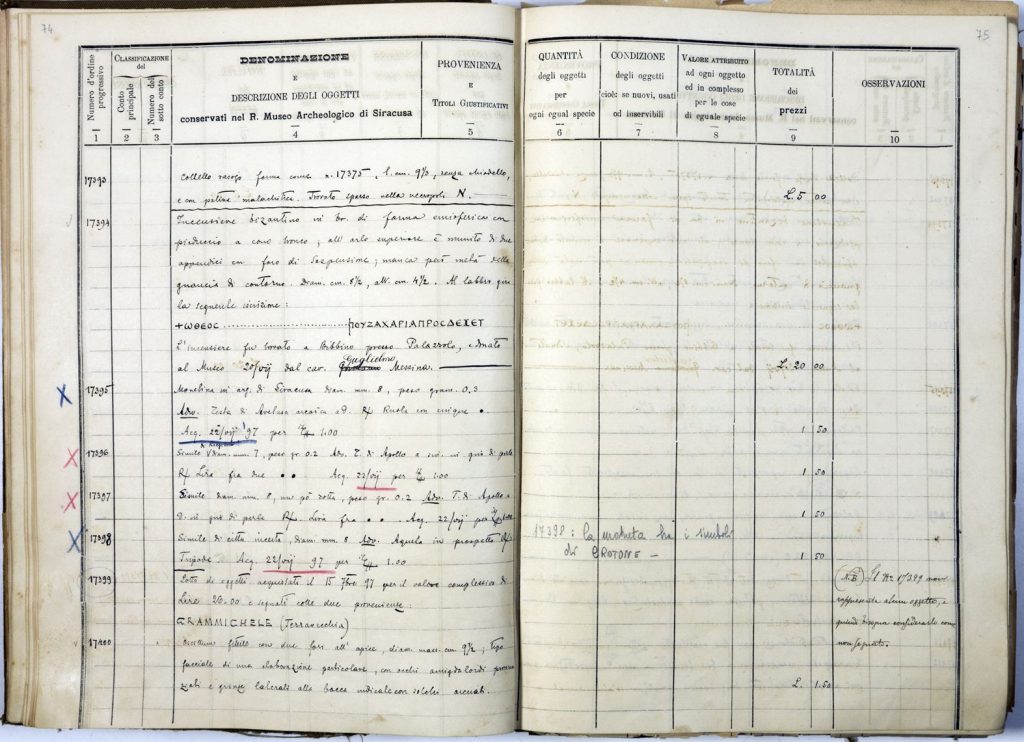 74
75
Numero d'ordine progressivo
CLASSIFICAZIONE del
Conto principale
Numero del sotto conto
DENOMINAZIONE
E
DESCRIZIONE DEGLI OGGETTI
conservati nel R. Museo Archeologico di Siracusa
PROVENIENZA
E
TITOLI GIUSTIFICATIVI
QUANTITÀ
degli oggetti
per
ogni egual specie
CONDIZIONE
degli oggetti
cioè: se nuovi, usati
od inservibili
VALORE ATTRIBUITO
ad ogni oggetto
ed in complesso
per le cose
di eguale specie
TOTALITÀ
dei
prezzi
OSSERVAZIONI
1 2 3 4 5 6 7 8 9 10
17393 Coltello rasojo forma come n. 17375, l. cm. 9½, senza
e con patina malachitica. Trovato sparso nella necropoli N. L. 5 00
17394 Incensiere bizantino in br. di forma emisferica con
pieduccio a cono tronco; all'orlo superiore è munito di due
appendici con foro di sospensione; manca però metà della
di contorno. Diam. cm. 8½, alt. cm. 4½. Al labbro gira
la seguente iscrizione:
+ΩΘΕΟC ............ ΠΟΥΖΑΧΑΡΙΑΠΡΟCΔΕΞΕΤ
L'incensiere fu trovato a Bibbino presso Palazzolo, e donato
al Museo 20/VII dal cav. Guglielmo Messina. L. 20 00
17395 Monetina in arg. di Siracusa diam. mm. 8, peso gram. 0.3
Adv. Testa di Aretusa arcaica a D. Rf Ruota con
Acq. 22/VII 97 per 1.00 1 50
17396 Simile diam. mm. 7, peso gr. 0.2 Adv. T. di Apollo a sin. in giro di perle
Rf Lira fra due • • Acq. 22/VII per 1.00 1 50
17397 Simile diam. mm. 8, un pò rotta, peso gr. 0.2 Adv. T. di Apollo a
D. in giro di perle Rf. Lira fra • • . Acq. 22/VII per 1 50
17398 Simile di città incerta, diam. mm. 8 Adv. Aquila in prospetto Rf
Tripode. Acq. 22/VII 97 per 1.00 1 50
17398: la moneta ha i simboli
di CROTONE –
17399 Lotto di oggetti acquistati il 15 7bre 97 per il valore complessivo di
Lire 26.00 e segnati colle due proveniente:
GRAMMICHELE (Terravecchia)
N.B. Il Nº 17399 non
rappresenta alcun oggetto, e
quindi bisogna considerarlo come
non segnato.
17400 Oscillum fittile con due fori all'apice, diam. mass. cm. 9½; tipo
facciale di una elaborazione particolare, con occhi amigdaloidi
e laterali alla bocca indicate con solchi arcuati. L. 1.50